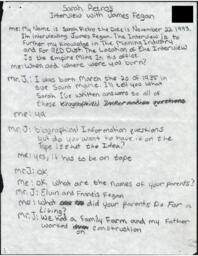 Sarah Petro's
Interview with James Fegan
me: My Name is Sarah Petro the Date is November 22, 1993.
I'm interviewing James Fegan. The Interview is to
Further my knowledge in The Mining Industry
and for RED DUST The Location of the Interview
is the Empire Mine in its office.
me: When and where were you born?
Mr. J: I was born March the 20 of 1935 in
Sue Saint Marie. I'll tell you what
Sarah I've written answers to all of
these Biographical Information questions
me: ya
Mr. J: biographical Information questions
but do you want to have it on the
Tape is that the Idea?
me: yes, it has to be on tape
Mr. J: ok
me: OK what are the names of your parents?
Mr. J: Elvin and Francis Fegan
me: What did your parents Do For a
Living?
Mr. J: We had a Family Farm and my Father
worked on construction